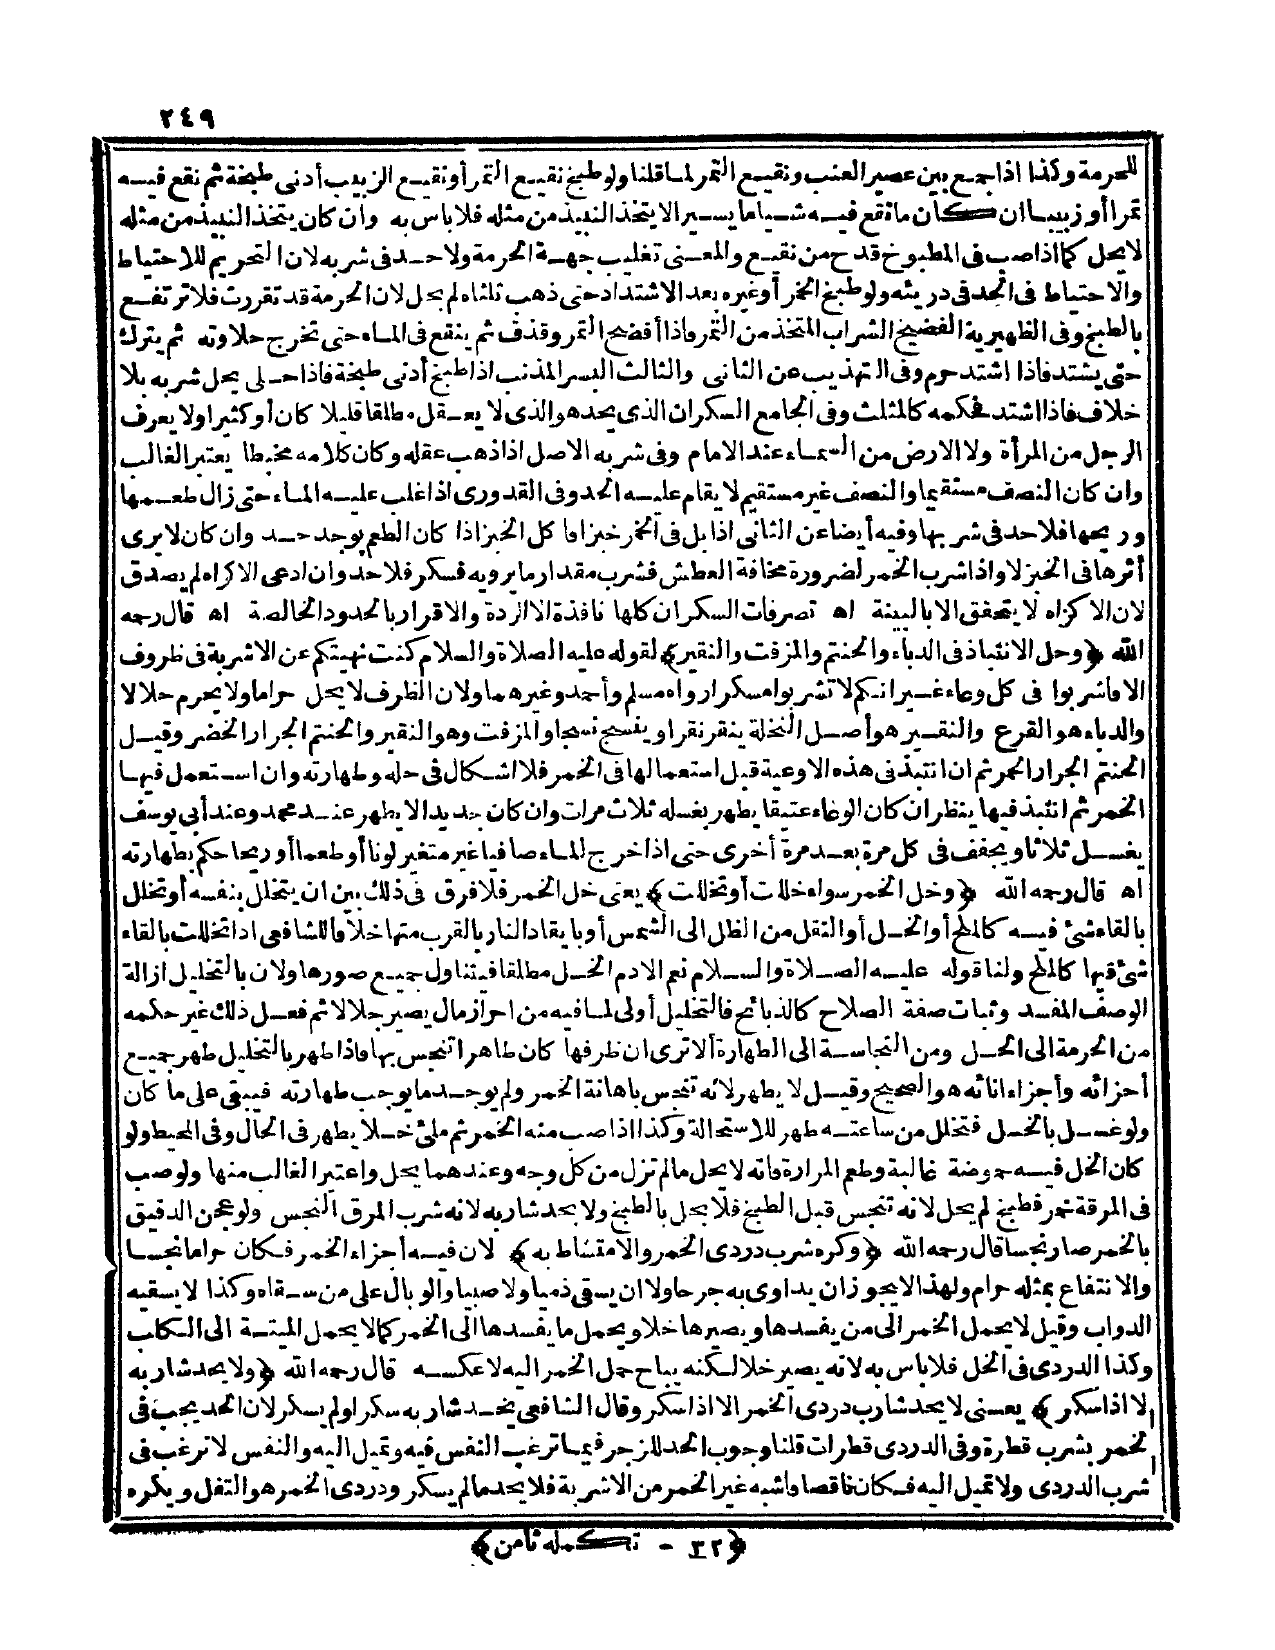 ٢٤٩
للحرمة وكذا اذا جمع بين عصير العنب ونقيع التمر لما قلنا ولو طبخ نقيع التمر أو نقيع الزبيب أدنى طبخة ثم نقع فيه
تمرا أو زبيبا ان كان ما نقع فيه شيأ ما يسير الا يتخذ النبيذ من مثله فلا باس به وان كان يتخذ النبيذ من مثله
لا يحل كما اذا صب فى المطبوخ قدح من نقيع والمعنى تغليب جهة الحرمة ولا حد فى شربه لان التحريم للاحتياط
والاحتياط فى الحد فى درئه ولو طبخ الخمر أو غيره بعد الاشتداد حتى ذهب ثلثاه لم يحل لان الحرمة قد تقررت فلا ترتفع
بالطبخ وفى الظهيرية الفضيخ الشراب المتخذ من التمر فاذا أفضخ التمر وقذف ثم ينقع فى الماء حتى تخرج حلاوته ثم يترك
حتى يشتد فاذا اشتد حرم وفى التهذيب عن الثانى والثالث البسر المذنب اذا طبخ أدنى طبخة فاذا حلى يحل شربه بلا
خلاف فاذا اشتد فحكمه كالمثلث وفى الجامع السكران الذى يحد هو الذى لا يعقل مطلقا قليلا كان أو كثيرا ولا يعرف
الرجل من المرأة ولا الارض من السماء عند الامام وفى شربه الاصل اذا ذهب عقله وكان كلامه مخبطا يعتبر الغالب
وان كان النصف مستقيما والنصف غير مستقيم لا يقام عليه الحد وفى القدورى اذا غلب عليه الماء حتى زال طعمها
وريحها فلا حد فى شربها وفيه أيضا عن الثانى اذا بل فى الخمر خبزا فا كل الخبز اذا كان الطعم يوجد حد وان كان لا يرى
أثرها فى الخبز لا واذا شرب الخمر لضرورة مخافة العطش فشرب مقدار ما يرويه فسكر فلا حد وان ادعى الاكراه لم يصدق
لان الاكراه لا يتحقق الا بالبينة اه تصرفات السكران كلها نافذة الا الردة والاقرار بالحدود الخالصة اه قال رحمه
الله ﴿وحل الانتباذ فى الدباء والحنتم والمزفت والنقير﴾ لقوله عليه الصلاة والسلام كنت نهيتكم عن الاشربة فى ظروف
الا فاشربوا فى كل وعاء غير انكم لا تشربوا مسكرا رواه مسلم وأحمد وغيرهما ولان الظرف لا يحل حراما ولا يحرم حلالا
والدباء هو القرع والنقير هو أصل النخلة ينقر نقرا وينسج نسجا والمزفت وهو النقير والحنتم الجرار الخضر وقيل
الحنتم الجرار الحمر ثم ان انتبذ فى هذه الاوعية قبل استعمالها فى الخمر فلا اشكال فى حله وطهارته وان استعمل فيها
الخمر ثم انتبذ فيها ينظر ان كان الوعاء عتيقا يطهر بغسله ثلاث مرات وان كان جديدا لا يطهر عند محمد وعند أبى يوسف
يغسل ثلاثا ويجفف فى كل مرة بعد مرة أخرى حتى اذا خرج الماء صافيا غير متغير لونا أو طعما أو ريحا حكم بطهارته
اه قال رحمه الله ﴿وخل الخمر سواء خللت أو تخللت﴾ يعنى حل الخمر فلا فرق فى ذلك بين ان يتخلل بنفسه أو تخلل
بالقاء شئ فيه كالملح أو الخل أو النقل من الظل الى الشمس أو بايقاد النار بالقرب منها خلافا للشافعى اذا تخللت بالقاء
شئ فيها كالملح ولنا قوله عليه الصلاة والسلام نعم الادم الخل مطلقا فيتناول جميع صورها ولان بالتخليل ازالة
الوصف المفسد وثبات صفة الصلاح كالذبائح فالتخليل أولى لما فيه من احراز مال يصير حلالا ثم فعل ذلك غير حكمه
من الحرمة الى الحل ومن النجاسة الى الطهارة ألا ترى ان ظرفها كان طاهرا تنجس بها فاذا طهر بالتخليل طهر جميع
أجزائه وأجزاء انائه هو الصحيح وقيل لا يطهر لانه تنجس باهانة الخمر ولم يوجد ما يوجب طهارته فيبقى على ما كان
ولو غسل بالخل فتخلل من ساعته طهر للاستحالة وكذا اذا صب منه الخمر ثم ملئ خلا يطهر فى الحال وفى المحيط ولو
كان الخل فيه حموضة غالبة وطعم المرارة فانه لا يحل ما لم تزل من كل وجه وعندهما يحل واعتبر الغالب منها ولو صب
فى المرقة خمر فطبخ لم يحل لانه تنجس قبل الطبخ فلا يحل بالطبخ ولا يحد شاربه لانه شرب المرق النجس ولو عجن الدقيق
بالخمر صار نجسا قال رحمه الله ﴿وكره شرب دردى الخمر والامتشاط به﴾ لان فيه أجزاء الخمر فكان حراما نجسا
والانتفاع بمثله حرام ولهذا لا يجوز ان يداوى به جرحا ولا ان يسقى ذميا ولا صبيا والوبال على من سقاه وكذا لا يسقيه
الدواب وقيل لا يحمل الخمر الى من يفسدها ويصيرها خلا ويحمل ما يفسدها الى الخمر كما لا يحمل الميتة الى الكلاب
وكذا الدردى فى الخل فلا باس به لانه يصير خلا لكنه يباح حمل الخمر اليه لا عكسه قال رحمه الله ﴿ولا يحد شاربه
الا اذا سكر﴾ يعنى لا يحد شارب دردى الخمر الا اذا سكر وقال الشافعى يحد شاربه سكر أو لم يسكر لان الحد يجب فى
الخمر بشرب قطرة وفى الدردى قطرات قلنا وجوب الحد للزجر فيما ترغب النفس فيه وتميل اليه والنفس لا ترغب فى
شرب الدردى ولا تميل اليه فكان ناقصا فاشبه غير الخمر من الاشربة فلا يحد ما لم يسكر ودردى الخمر هو التفل ويكره
﴿٣٢ - تكمله ثامن﴾